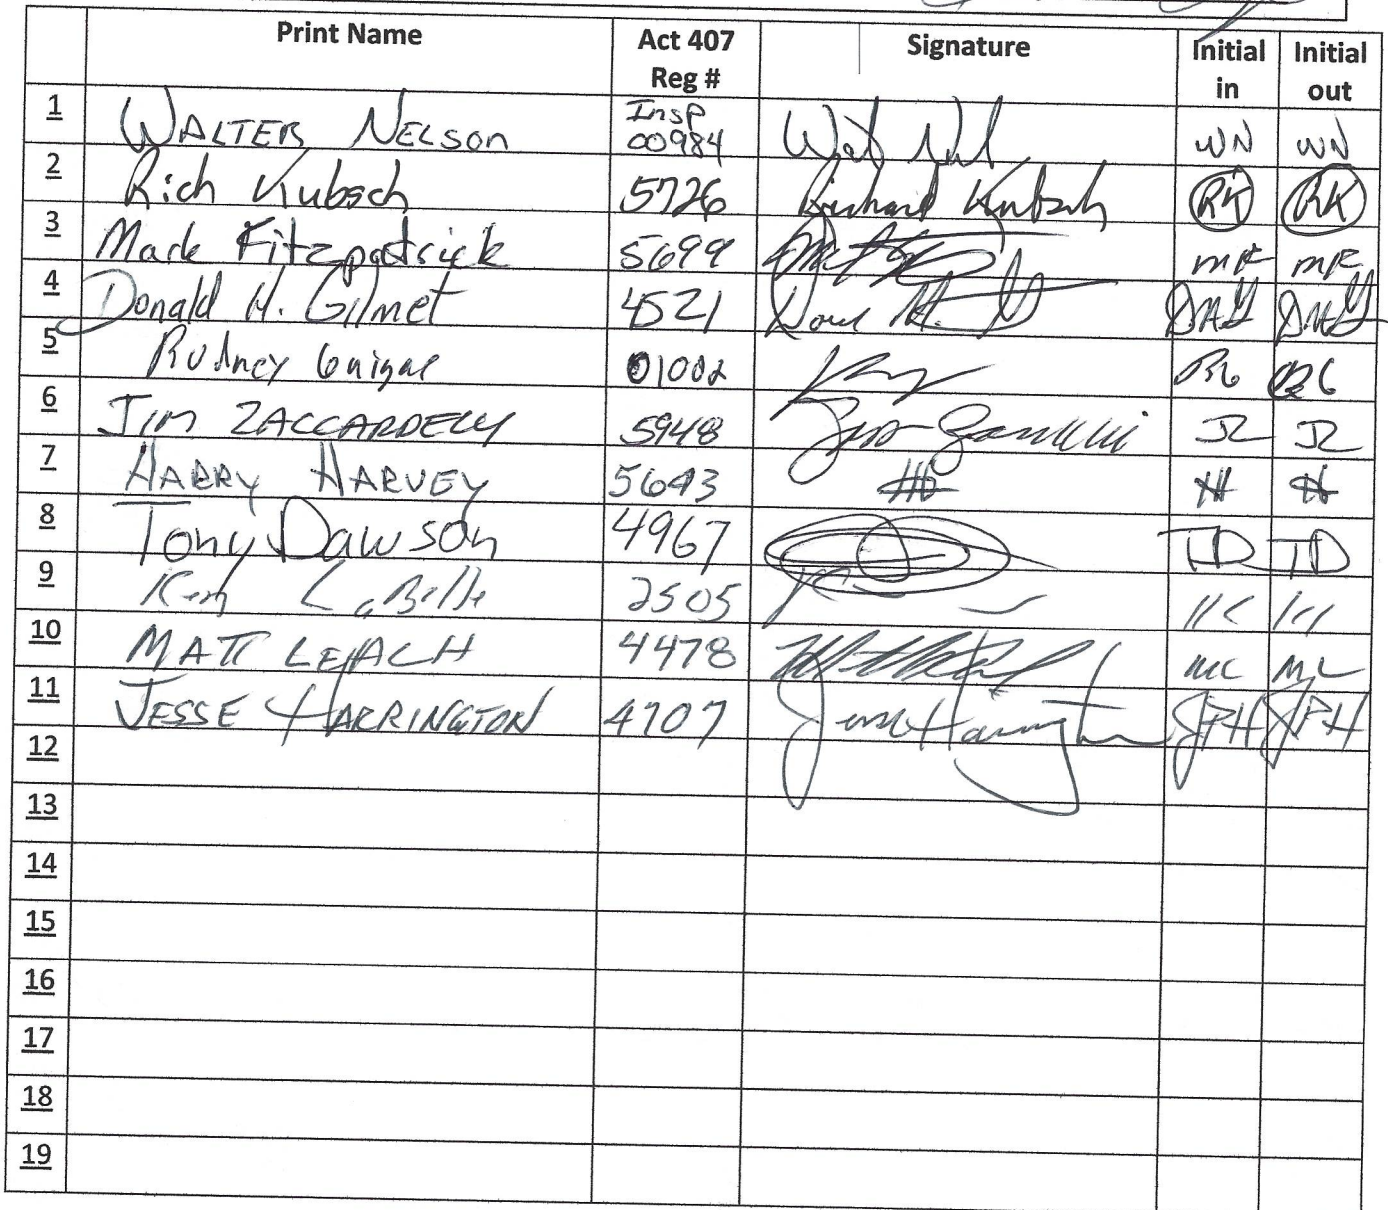 Print Name Act 407 Reg # Signature Initial in Initial out
1 WALTER NELSON Insp 00984 WN WN
2 Rich Kubsch 5726 Richard Kubsch RK RK
3 Mark Fitzpatrick 5699 MF MF
4 Donald H. Gilmet 4521 DHG DHG
5 Rodney 01002 RG RG
6 JIM ZACCARDELLI 5948 JZ JZ
7 HARRY HARVEY 5643 HH
8 Tony Dawson 4967 TD TD
9 Ken LaBelle 2505
10 MATT LEHACH 4478 ML ML
11 JESSE HARRINGTON 4707 Jesse Harrington JPH JPH
12
13
14
15
16
17
18
19